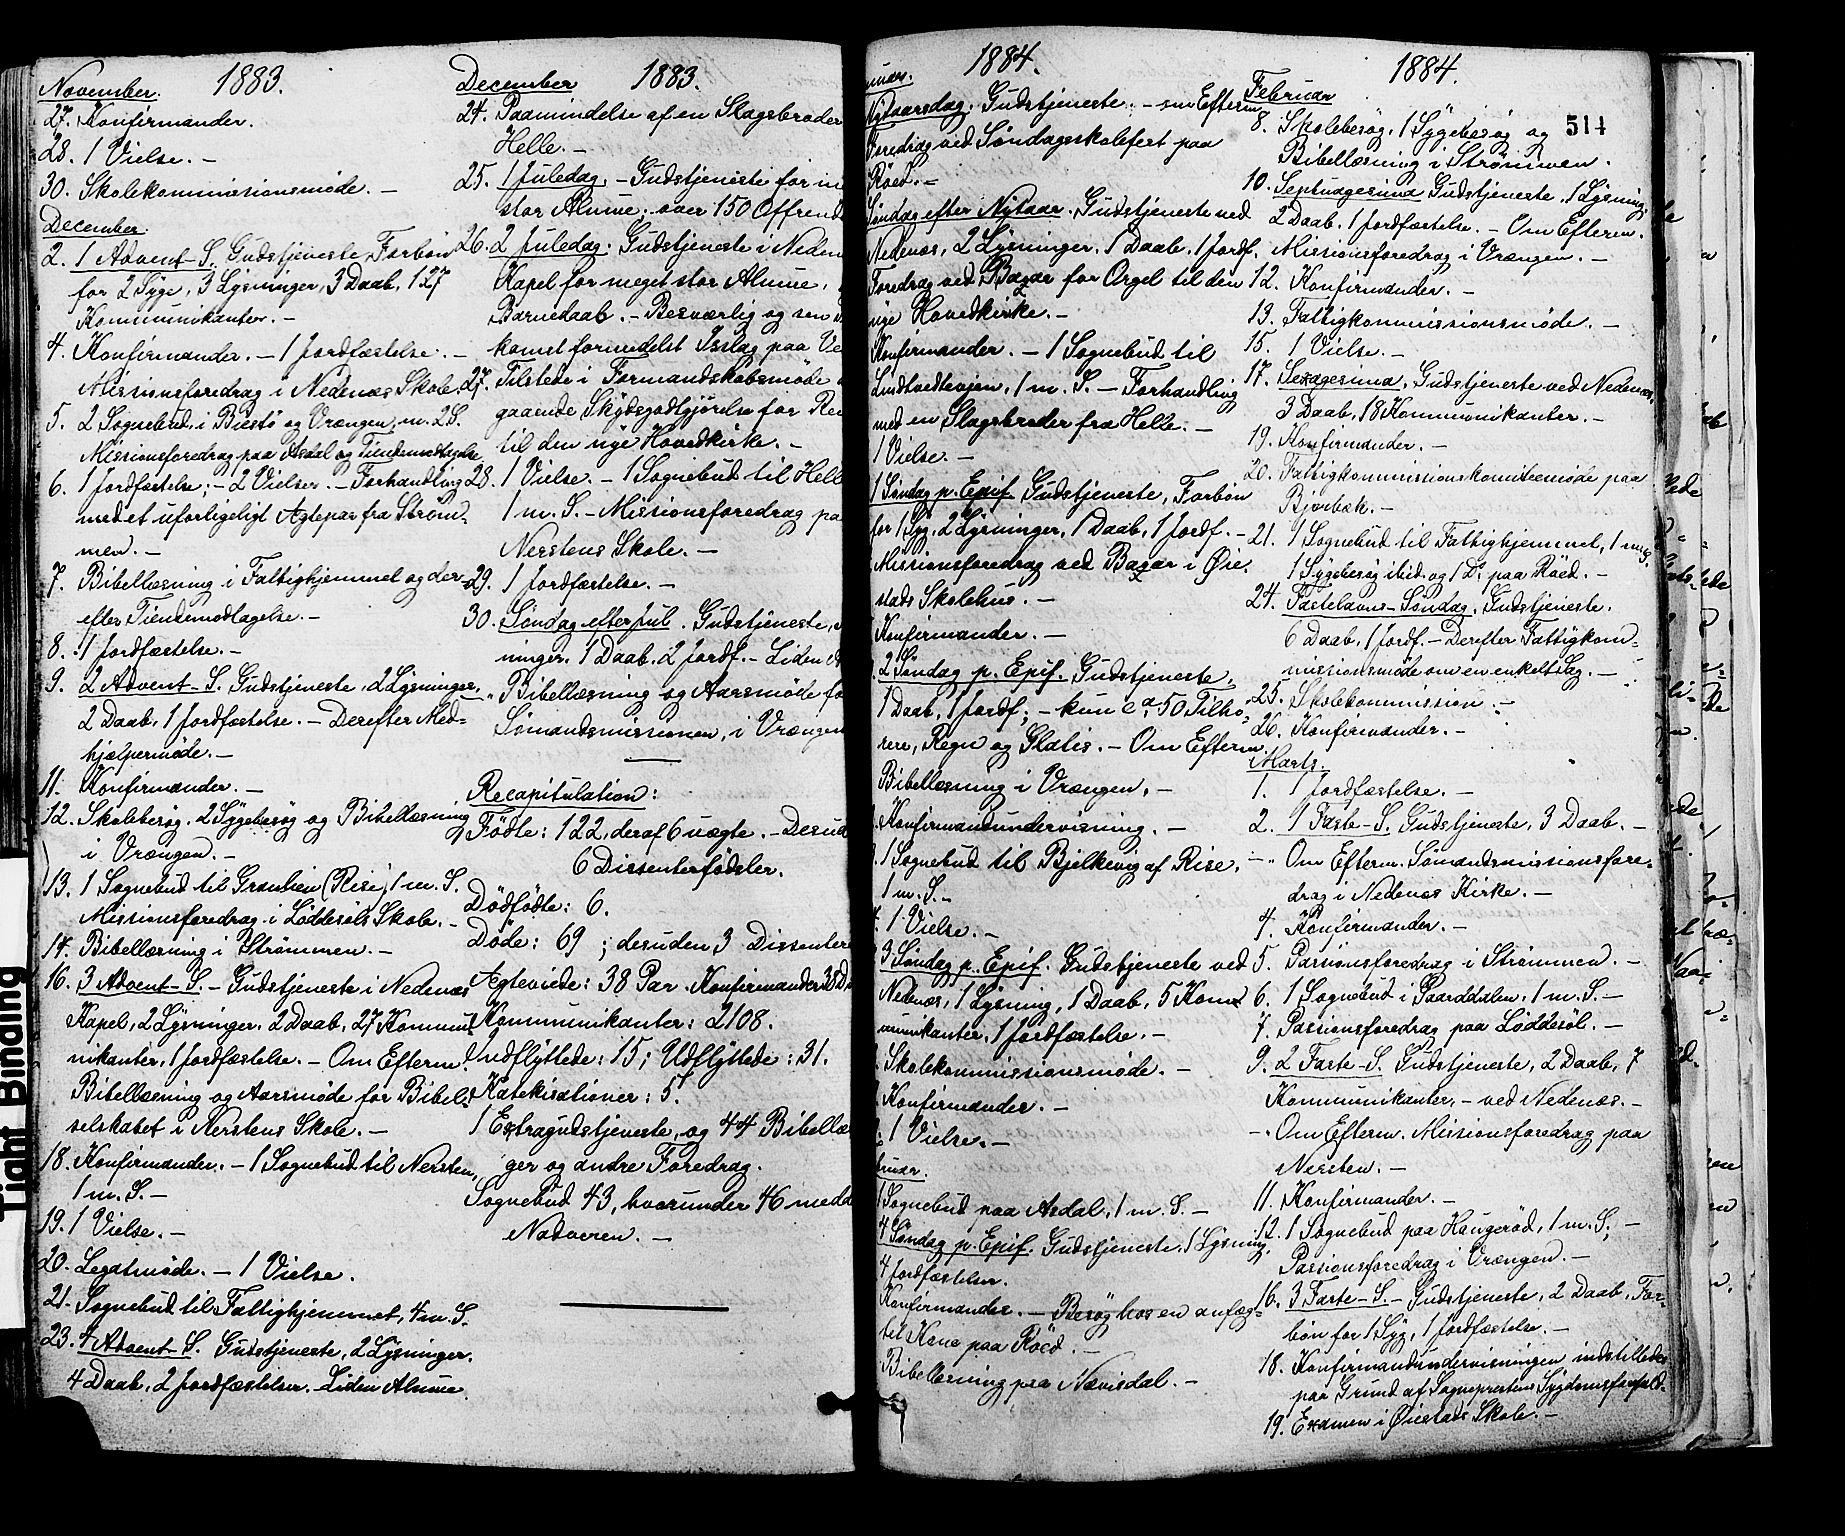 1883.
November.
27. Konfirmander.
28. 1 Vielse. –
30. Skolekommissionsmøde. –
December.
2. 1 Advent-S. Gudstjeneste, Forbøn
for 2 Syge, 3 Lysninger, 3 Daab, 127
Kommunikanter. –
4. Konfirmander. – 1 Jordfæstelse. –
Missionsforedrag i Nedenæs Skole.
5. 2 Sognebud i Biestø og Vrængen, m. 2 S.
Missionsforedrag paa Asdal og Tiendemodtagelse
6. 1 Jordfæstelse; – 2 Vielser. – Forhandling
med et uforligeligt Ægtepar fra Strøm-
men. –
7. Bibellæsning i Fattighjemmet og der-
efter Tiendemodtagelse. –
8. 1 Jordfæstelse. –
9. 2 Advent-S. Gudstjeneste, 2 Lysninger,
2 Daab, 1 Jordfæstelse. – Derefter Med-
hjælpermøde. –
11. Konfirmander. –
12. Skolebesøg, 2 Sygebesøg og Bibellæsning
i Vrængen. –
13. 1 Sognebud til Granlien (Rise), 1 m. S.
Missionsforedrag i Løddesøls Skole. –
14. Bibellæsning i Strømmen. –
16. 3 Advent-S. – Gudstjeneste i Nedenæs
Kapel, 2 Lysninger, 2 Daab, 27 Kommu-
nikanter, 1 Jordfæstelse. – Om Efterm.
Bibellæsning og Aarsmøde for Bibel-
selskabet i Nerstens Skole. –
18. Konfirmander. – 1 Sognebud til Nersten,
1 m. S. –
19. 1 Vielse. –
20. Legatmøde. – 1 Vielse.
21. Sognebud til Fattighjemmet, 4 m. S.
23. 4 Advent-S. Gudstjeneste, 2 Lysninger.
4 Daab, 2 Jordfæstelser. Liden Almue.
1883.
December
24. Paamindelse af en Slagsbroder
Helle. –
25. 1 Juledag. – Gudstjeneste for m
stor Almue; over 150 Offrende
26. 2 Juledag. Gudstjeneste i Neden
Kapel for meget stor Almue,
Barnedaab. – Besværlig og sen
komst formedelst Isslag paa Ve
27. Tilstede i Formandskabsmøde
gaaende Skydsgodtgjørelse for
til den nye Hovedkirke. –
28. 1 Vielse. – 1 Sognebud til Helle
1 m. S. – Missionsforedrag pa
Nerstens Skole. –
29. 1 Jordfæstelse. –
30. Søndag efter Jul. Gudstjeneste,
ninger, 1 Daab, 2 Jordf. – Liden
„ Bibellæsning og Aarsmøde fo
Sømandsmissionen, i Vrængen
Recapitulation:
Fødte: 122, deraf 6 uægte. – Desud
6 Dissenterfødsler.
Dødfødte: 6.
Døde: 69; desuden 3 Dissentere
Ægteviede: 38 Par. Konfirmander 38
Kommunikanter: 2108.
Indflyttede: 15; Udflyttede: 31.
Katekisationer: 5.
1 Extragudstjeneste, og 44 Bibellæ
ger og andre Foredrag.
Sognebud 43, hvorunder 46 medd
Nadveren. –
1884.
nuar.
Nytaarsdag. Gudstjeneste. – Om Efterm
Foredrag ved Søndagsskolefest paa
Røed. –
Søndag efter Nytaar. Gudstjeneste ved
Nedenæs, 2 Lysninger, 1 Daab, 1 Jordf.
Foredrag ved Bazar for Orgel til den
nye Hovedkirke. –
Konfirmander. – 1 Sognebud til
Lindtvedtevjen, 1 m. S. – Forhandling
med en Slagsbroder fra Helle. –
1 Vielse. –
1 Søndag p. Epif. Gudstjeneste, Forbøn
for 1 Syg, 2 Lysninger, 1 Daab, 1 Jordf. –
Missionsforedrag ved Bazar i Øie-
stads Skolehus. –
Konfirmander. –
2 Søndag p. Epif. Gudstjeneste,
1 Daab, 1 Jordf; – kun ca 50 Tilhø-
rere, Regn og Glatis. – Om Efterm.
Bibellæsning i Vrængen. –
Konfirmandundervisning. –
1 Sognebud til Bjelkevig af Rise,
1 m. S. –
1 Vielse. –
3 Søndag p. Epif. Gudstjeneste ved
Nedenæs, 1 Lysning, 1 Daab, 5 Kom-
munikanter, 1 Jordfæstelse. –
Skolekommissionsmøde. –
Konfirmander. –
1 Vielse. –
bruar.
1 Sognebud paa Asdal, 1 m. S. –
4 Søndag p. Epif. Gudstjeneste, 1 Lysning,
4 Jordfæstelser.
Konfirmander. – Besøg hos en anfæg-
tet Kone paa Røed. –
Bibellæsning paa Nævisdal. –
1884.
514
Februar
8. Skolebesøg, 1 Sygebesøg og
Bibellæsning i Strømmen.
10. Septuagesima Gudstjeneste, 1 Lysning,
2 Daab, 1 Jordfæstelse. – Om Efterm.
Missionsforedrag i Vrængen. –
12. Konfirmander. –
13. Fattigkommissionsmøde. –
15. 1 Vielse. –
17. Sexagesima, Gudstjeneste ved Nedenæs,
3 Daab, 18 Kommunikanter. –
19. Konfirmander. –
20. Fattigkommissionskomiteemøde paa
Bjorbæk. –
21. 1 Sognebud til Fattighjemmet, 1 m. S.
1 Sygebesøg ibid. og 1 Do paa Røed. –
24. Fastelavns-Søndag. Gudstjeneste.
6 Daab, 1 Jordf. – Derefter Fattigkom-
missionsmøde om en enkelt Sag. –
25. Skolekommission. –
26. Konfirmander. –
Marts.
1. 1 Jordfæstelse. –
2. 1 Faste-S. Gudstjeneste, 3 Daab. –
–„ Om Efterm. Sømandsmissionsfore-
drag i Nedenæs Kirke. –
4. Konfirmander. –
5. Passionsforedrag i Strømmen. –
6. 1 Sognebud i Saarddalen, 1 m. S. –
7. Passionsforedrag paa Løddesøl. –
9. 2 Faste-S. Gudstjeneste, 2 Daab, 7
Kommunikanter, – ved Nedenæs. –
–„ Om Efterm. Missionsforedrag paa
Nersten. –
11. Konfirmander. –
12. 1 Sognebud paa Haugerød, 1 m. S; –
Passionsforedrag i Vrængen. –
16. 3 Faste-S. – Gudstjeneste, 2 Daab, For-
bøn for 1 Syg, 1 Jordfæstelse. –
18. Konfirmandundervisningen indstilledes
paa Grund af Sogneprestens Sygdomsforfald.
19. Examen i Øiestads Skole. –
Tight Binding